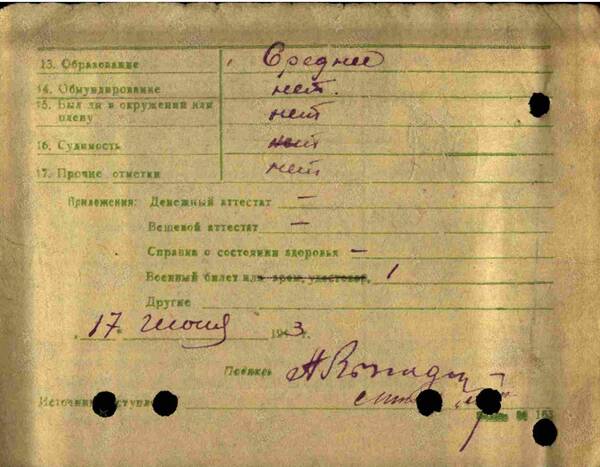 13. Образование Среднее
14. Обмундирование нет.
15. Был ли в окружении или
плену нет
16. Судимость нет
17. Прочие отметки нет
Приложения: Денежный аттестат –
Вещевой аттестат –
Справка о состоянии здоровья –
Военный билет или врем. удостовер. 1
Другие
„17" июня 1943 г.
Подпись